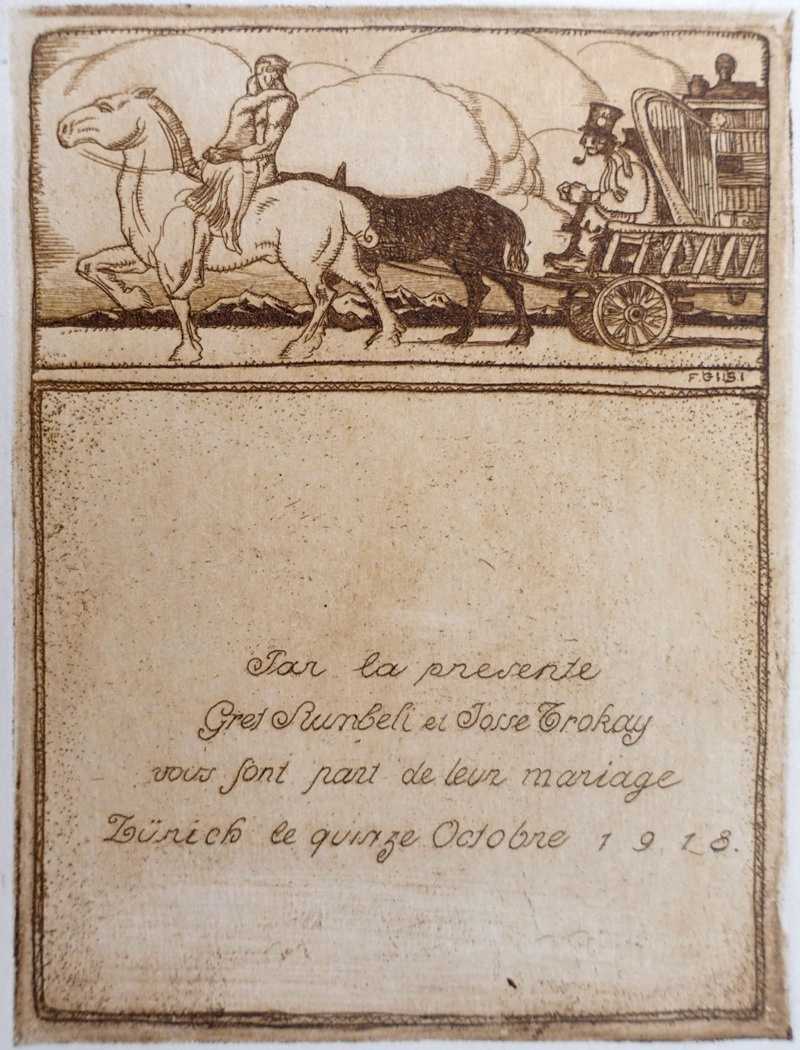 F. GILSI
Par la presente
Gret Rumbeli et Josse Trokay
vous font part de leur mariage
Zürich le quinze Octobre 1918.